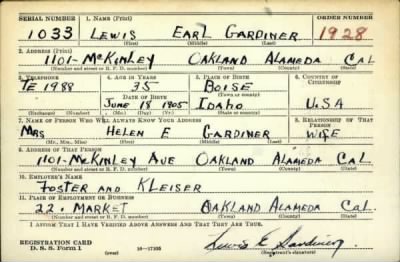 SERIAL NUMBER 1. NAME (Print) ORDER NUMBER
1033 LEWIS EARL GARDINER 1928
(First) (Middle) (Last)
2. ADDRESS (Print)
1101- McKINLEY OAKLAND ALAMEDA CAL
(Number and street or R. F. D. number) (Town) (County) (State)
3. TELEPHONE 4. AGE IN YEARS 5. PLACE OF BIRTH 6. COUNTRY OF CITIZENSHIP
TE 1988 35 BOISE
DATE OF BIRTH (Town or county)
JUNE 18 1905 IDAHO USA
(Exchange) (Number) (Mo.) (Day) (Yr.) (State or country)
7. NAME OF PERSON WHO WILL ALWAYS KNOW YOUR ADDRESS 8. RELATIONSHIP OF THAT PERSON
MRS HELEN E GARDINER WIFE
(Mr., Mrs., Miss) (First) (Middle) (Last)
9. ADDRESS OF THAT PERSON
1101- McKINLEY AVE OAKLAND ALAMEDA CAL.
(Number and street or R. F. D. number) (Town) (County) (State)
10. EMPLOYER'S NAME
FOSTER AND KLEISER
11. PLACE OF EMPLOYMENT OR BUSINESS
22. MARKET OAKLAND ALAMEDA CAL.
(Number and street or R. F. D. number) (Town) (County) (State)
I AFFIRM THAT I HAVE VERIFIED ABOVE ANSWERS AND THAT THEY ARE TRUE.
REGISTRATION CARD
D. S. S. Form 1 (over) 16-17105 Lewis E. Gardiner
(Registrant's signature)